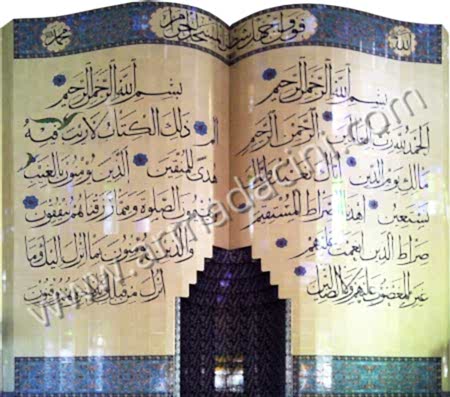 الله
محمد
بسم الله الرحمن الرحيم
الحمد لله رب العالمين الرحمن الرحيم
مالك يوم الدين اياك نعبد واياك
نستعين اهدنا الصراط المستقيم
صراط الذين انعمت عليهم
غير المغضوب عليهم ولا الضالين
بسم الله الرحمن الرحيم
الم ذلك الكتاب لا ريب فيه
هدى للمتقين الذين يؤمنون بالغيب
ويقيمون الصلوة ومما رزقناهم ينفقون
والذين يؤمنون بما انزل اليك وما
انزل من قبلك وبالاخرة هم يوقنون
www.armadacini.com